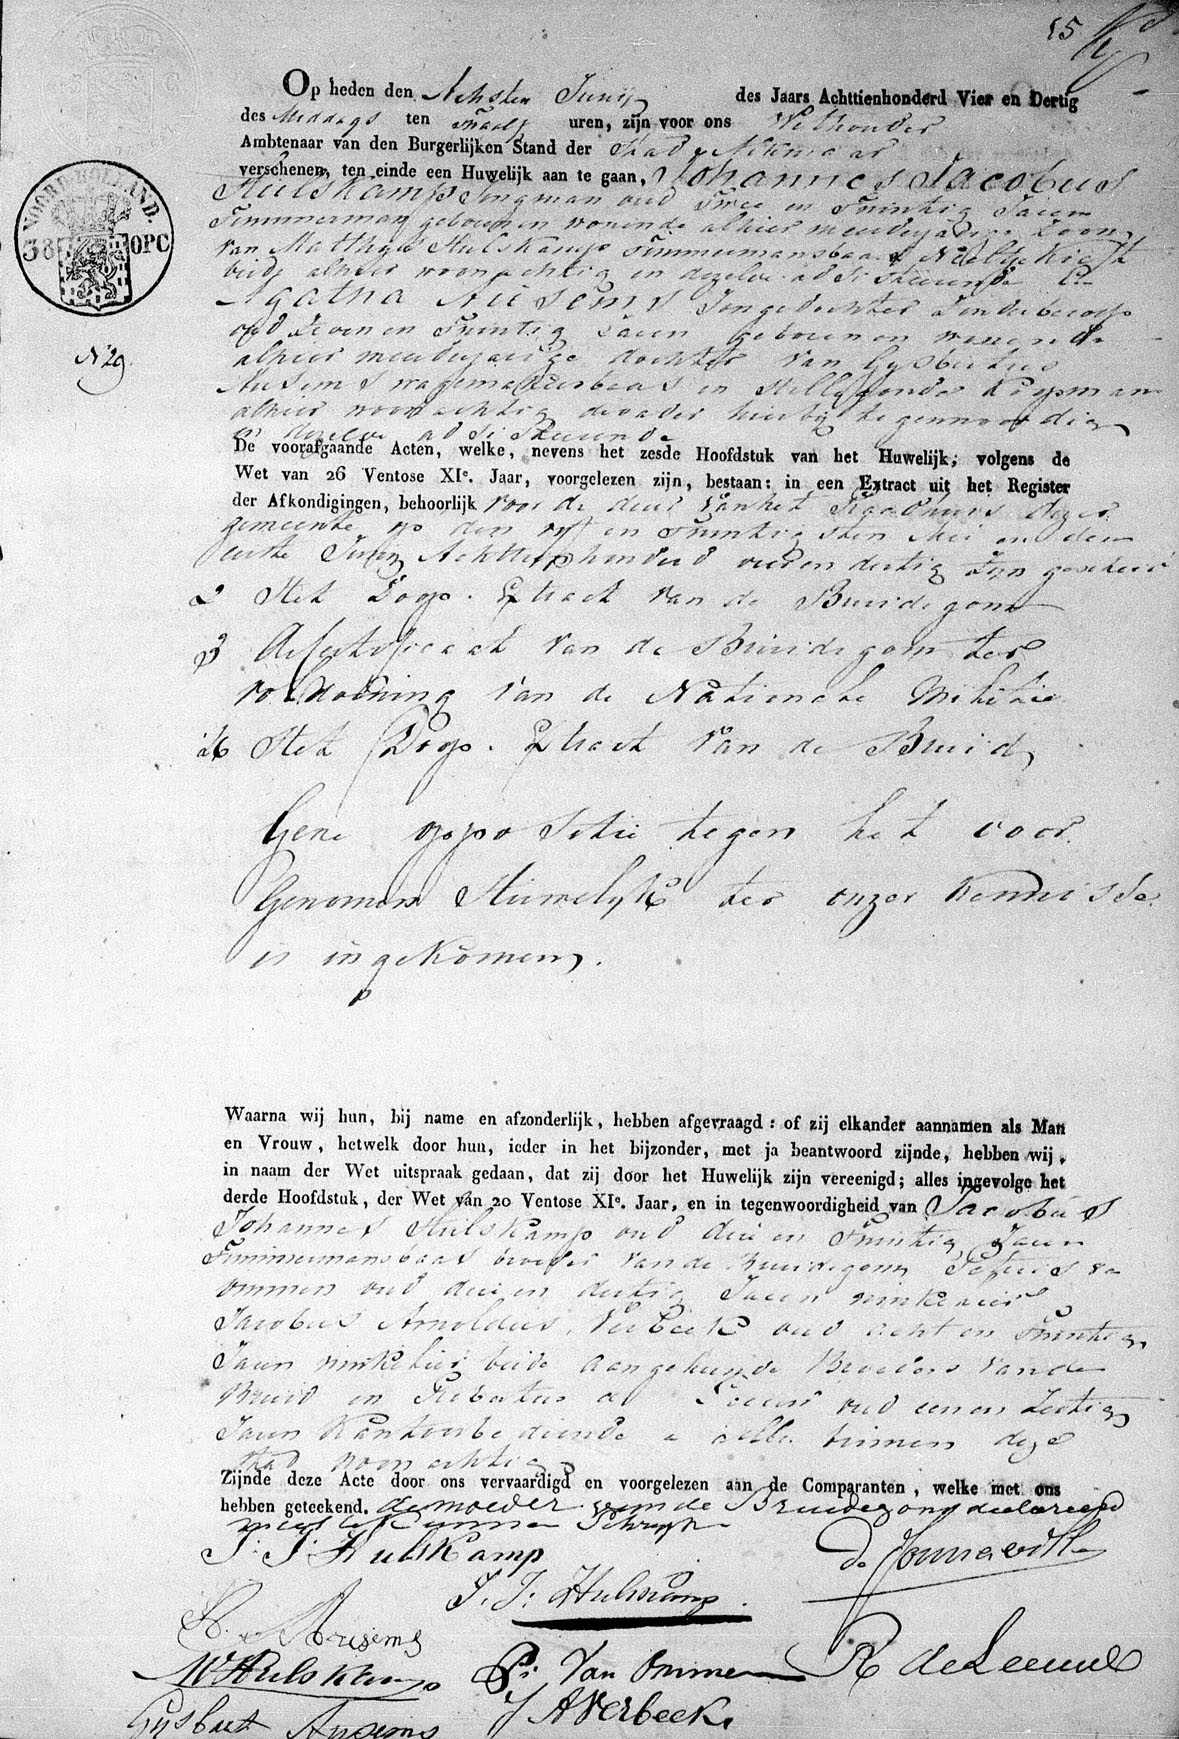 15
Op heden den Achsten Junij des Jaars Achttienhonderd Vier en Dertig
des Middags ten Twaalf uren, zijn voor ons Wethouder
Ambtenaar van den Burgerlijken Stand der Stad Alkmaar
verschenen, ten einde een Huwelijk aan te gaan, Johannes Jacobus
Hulskamp Jongman oud Twee en Twintig Jaren
Timmerman geboren en wonende alhier meerderjarige Zoon
van Matthijs Hulskamp Timmermansbaas & Neeltje
beide alhier woonachtig en dezelve adsisteerende En
NOORD-HOLLAND.
38 OPC
Agatha Ausems Jongedochter Zonder beroep
oud Zeven en Twintig Jaren geboren en wonende
N 29.
alhier meerderjarige dochter van Gysbertus
Ausems wagemakersbaas en Koopman
alhier woonachtig de vader hierbij tegenwoordig
en dezelve adsisteerende
De voorafgaande Acten, welke, nevens het zesde Hoofdstuk van het Huwelijk, volgens de
Wet van 26 Ventose XIe. Jaar, voorgelezen zijn, bestaan: in een Extract uit het Register
der Afkondigingen, behoorlijk voor de deur van het Raadhuis dezer
gemeente op den vyf en Twintigsten Mei en den
eerste Junij Achttienhonderd vier en dertig Zyn geschied
2 Het Doop. Extract van de Bruidegom
3 Certificaat van de Bruidegom ter
voldoening van de Nationale Militie
Het Doop. Extract van de Bruid
Gene oppositie tegen het voor
Genomen Huwelyk ter onzer Kennisse
is ingekomen.
Waarna wij hun, bij name en afzonderlijk, hebben afgevraagd: of zij elkander aannamen als Man
en Vrouw, hetwelk door hun, ieder in het bijzonder, met ja beantwoord zijnde, hebben wij,
in naam der Wet uitspraak gedaan, dat zij door het Huwelijk zijn vereenigd; alles ingevolge het
derde Hoofdstuk, der Wet van 20 Ventose XIe. Jaar, en in tegenwoordigheid van Jacobus
Johannes Hulskamp oud drie en Twintig Jaren
Timmermansbaas broeder van de Bruidegom Petrus va
ommen oud drie en dertig Jaren winkelier
Jacobus Arnoldus Verbeek oud acht en Twintig
Jaren winkelier beide Aangehuwde Broeders van de
Bruid en Rubertus de Leeuw oud een en Zestig
Jaren Kantoorbediende alle binnen deze
stad woonachtig
Zijnde deze Acte door ons vervaardigd en voorgelezen aan de Comparanten, welke met ons
hebben geteekend. de moeder van de Bruidegom declareerd
niet te kunnen Schryve
J: J: Hulskamp
J. J: Hulskamp.
Ausems
W Hulskamp P: Van Ommen R de Leeuw
Gysbert Ausems J A Verbeek